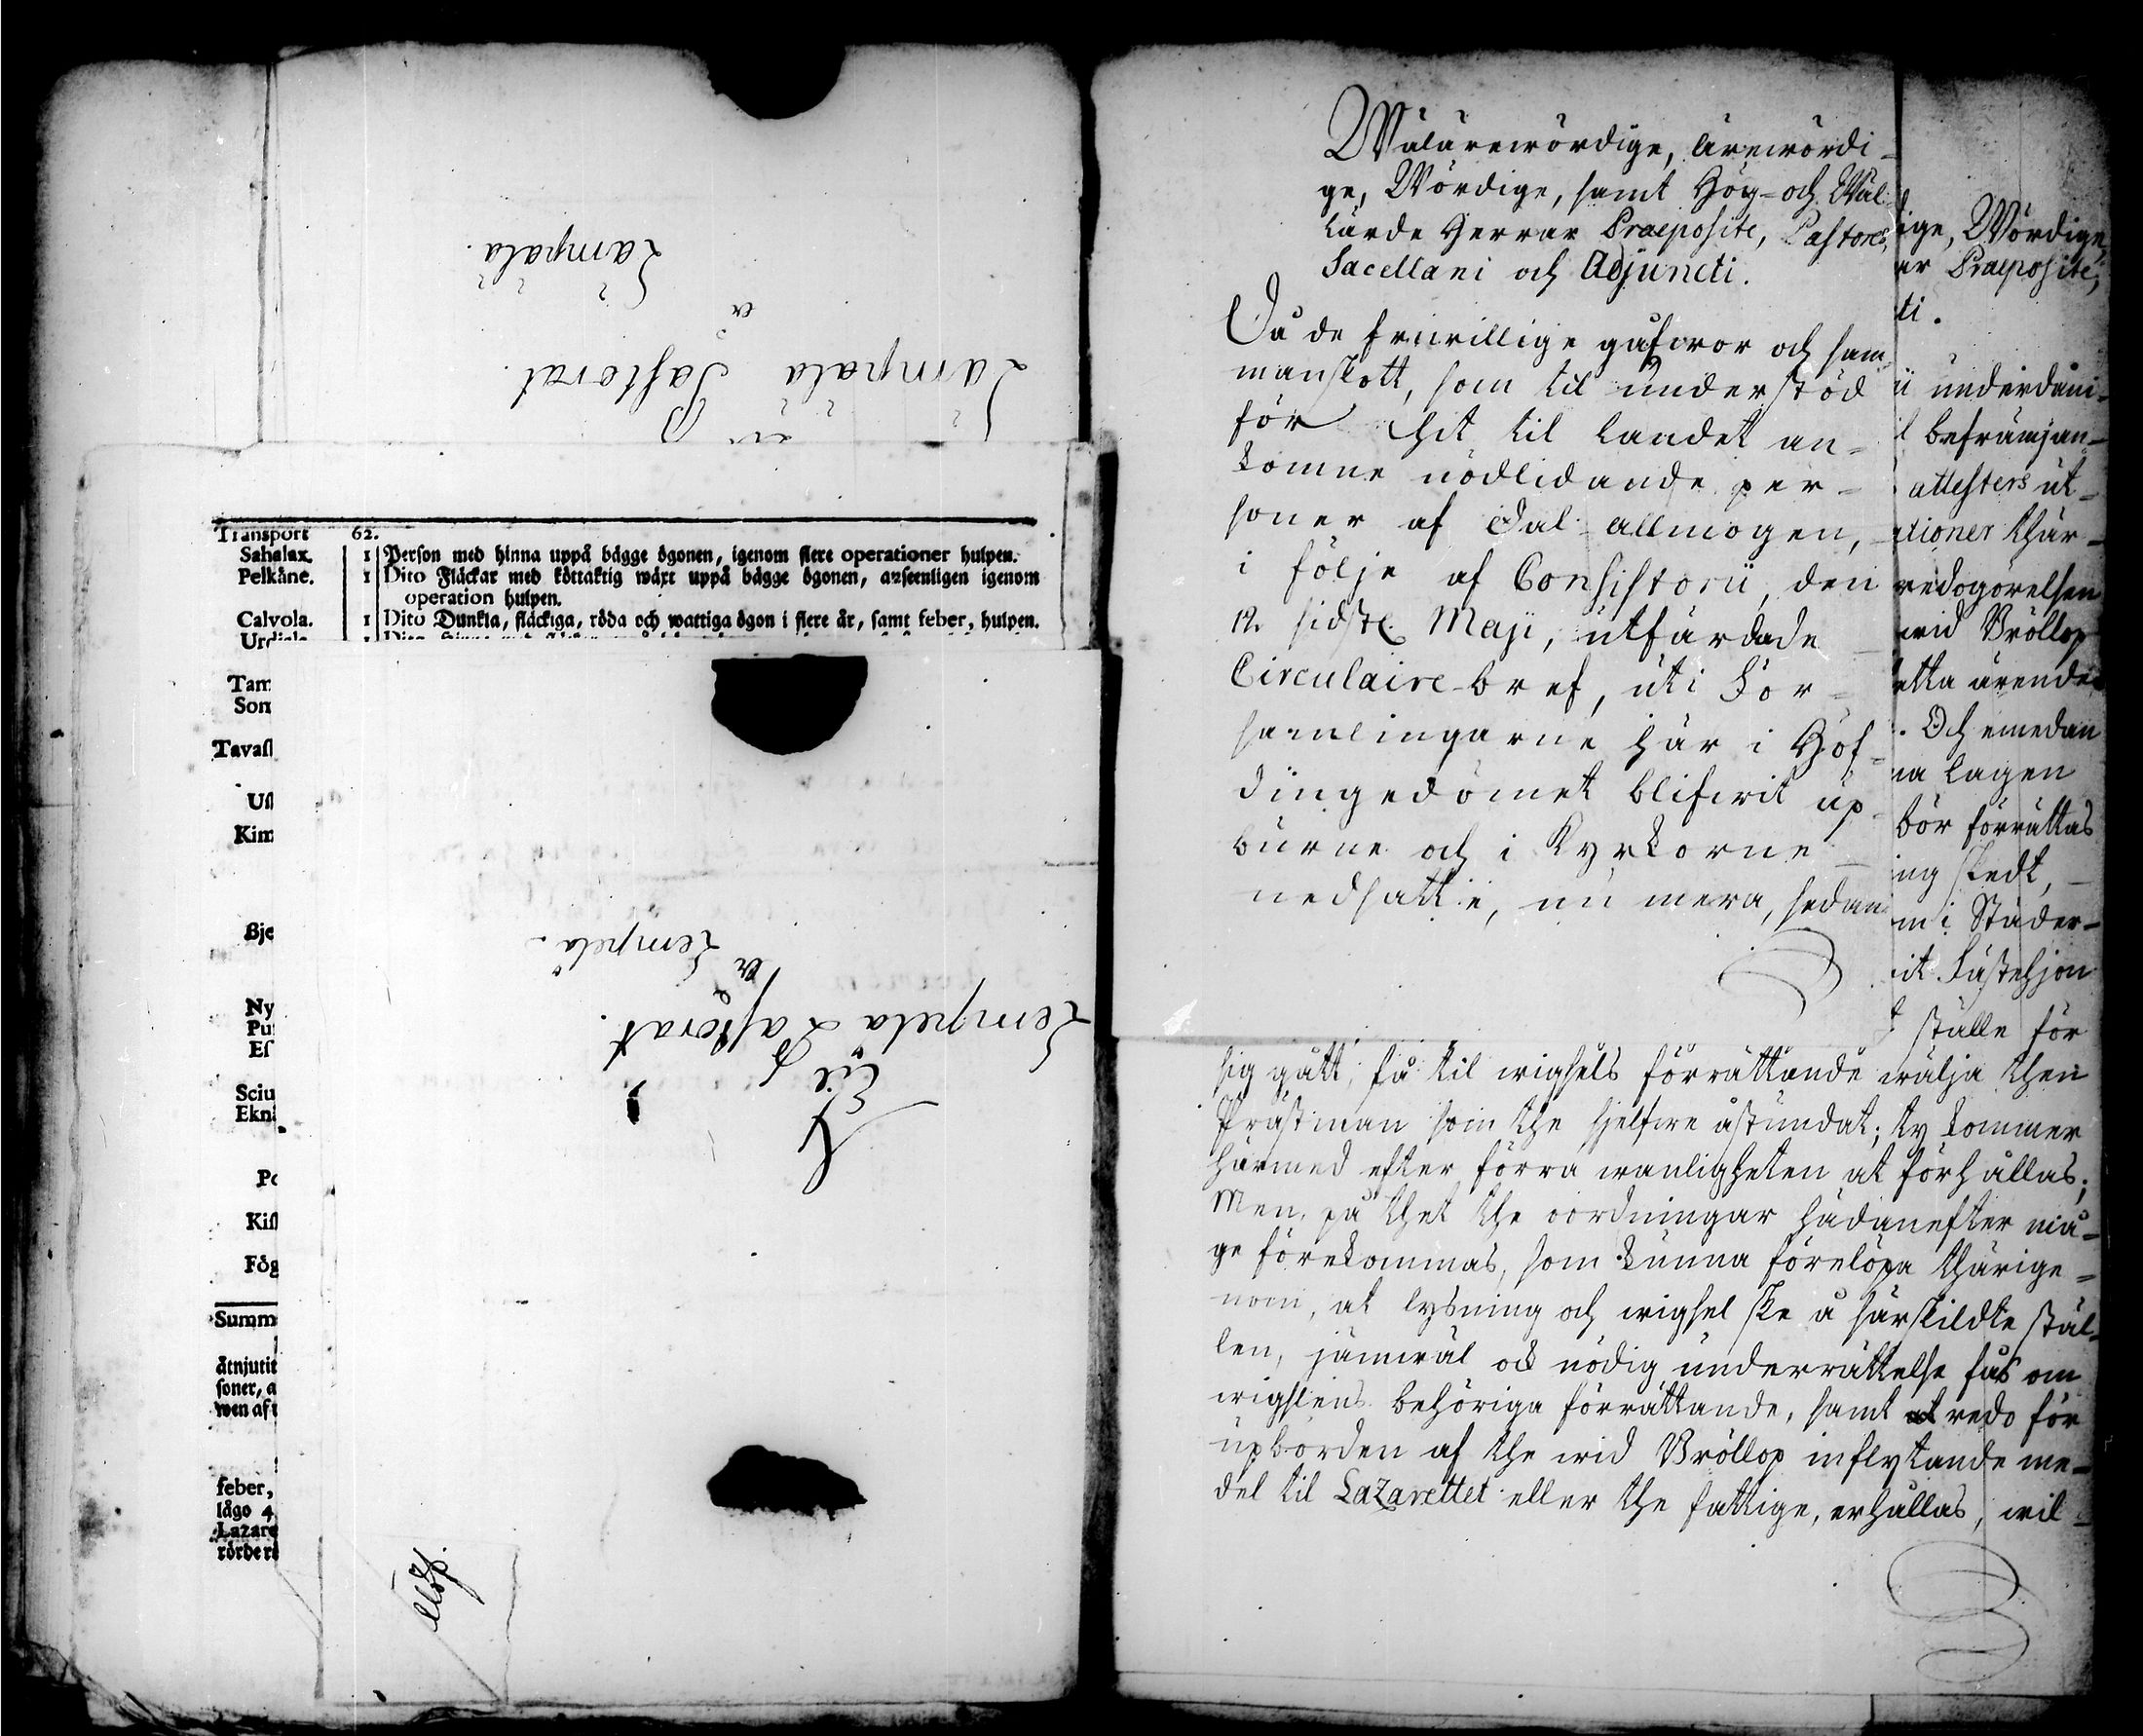 Lämpälä Pastorat.
å
Lämpälä.
Transport 62.
Sahalax. 1 Person med hinna uppå bägge ögonen, igenom flere operationer hulpen.
Pelkäne. 1 Dito Fläckar med köttaktig wäxt uppå bägge ögonen, anseenligen igenom
operation hulpen.
Calvola. 1 Dito Dunkla, fläckiga, röda och wattiga ögon i flere år, samt feber, hulpen.
Tam
Som
Tavast
Kim
Bje
Ny
Sciu
Ekn
Po
Kis
Fög
Summ
åtnjutit
soner, a
wen af
feber,
lågo 4
Lazare
rörde
Til
Lempelä Pastorat.
Lempelä.
Wälärewördige, ärewördi-
ge, Wördige, samt Hög- och Wäl
lärde Herrar Praeposite, Pastores,
Sacellani och Adjuncti.
Då de friwillige gåfwor och sam-
manskott, som til understöd
för hit til landet an-
komne nödlidande per-
soner af Dal-allmogen,
i följe af Consistorii, den
12. sidstl. Maji, utfärdade
Circulaire-bref, uti För-
samlingarne här i Höf-
dingedömet blifwit up-
burne och i Kyrkorne
nedsatte, nu mera, sedan
ige, Wördige,
er Praeposite,
ti.
underdåni-
befrämjan-
attesters ut-
ationer thär-
redogörelsen
wid Bröllop
etta ärendet
. Och emedan
na lagen
bör förrättas
ing skedt,
m i Städer-
it fästehjon
ställe för
sig gått, få til wigsels förrättande wälja then
Prästman som the sjelfwe åstundat; ty kommer
härmed efter förra wanligheten at förhållas;
Men, på thet the oordningar hädanefter må-
ge förekommas, som kunna förelöpa thärige-
nom, at lysning och wigsel ske å särskildte stäl-
len, jämwäl ock nödig underrättelse fås om
wigslens behöriga förrättande, samt redo för
upbörden af the wid Bröllop inflytande me-
del til Lazarettet eller the fattige, erhållas, wil-